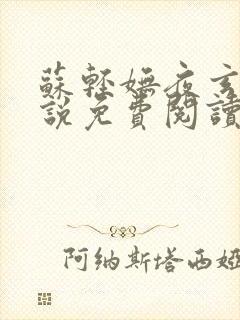 蘇輕嫵夜玄
說免費閱讀
阿納斯塔西婭